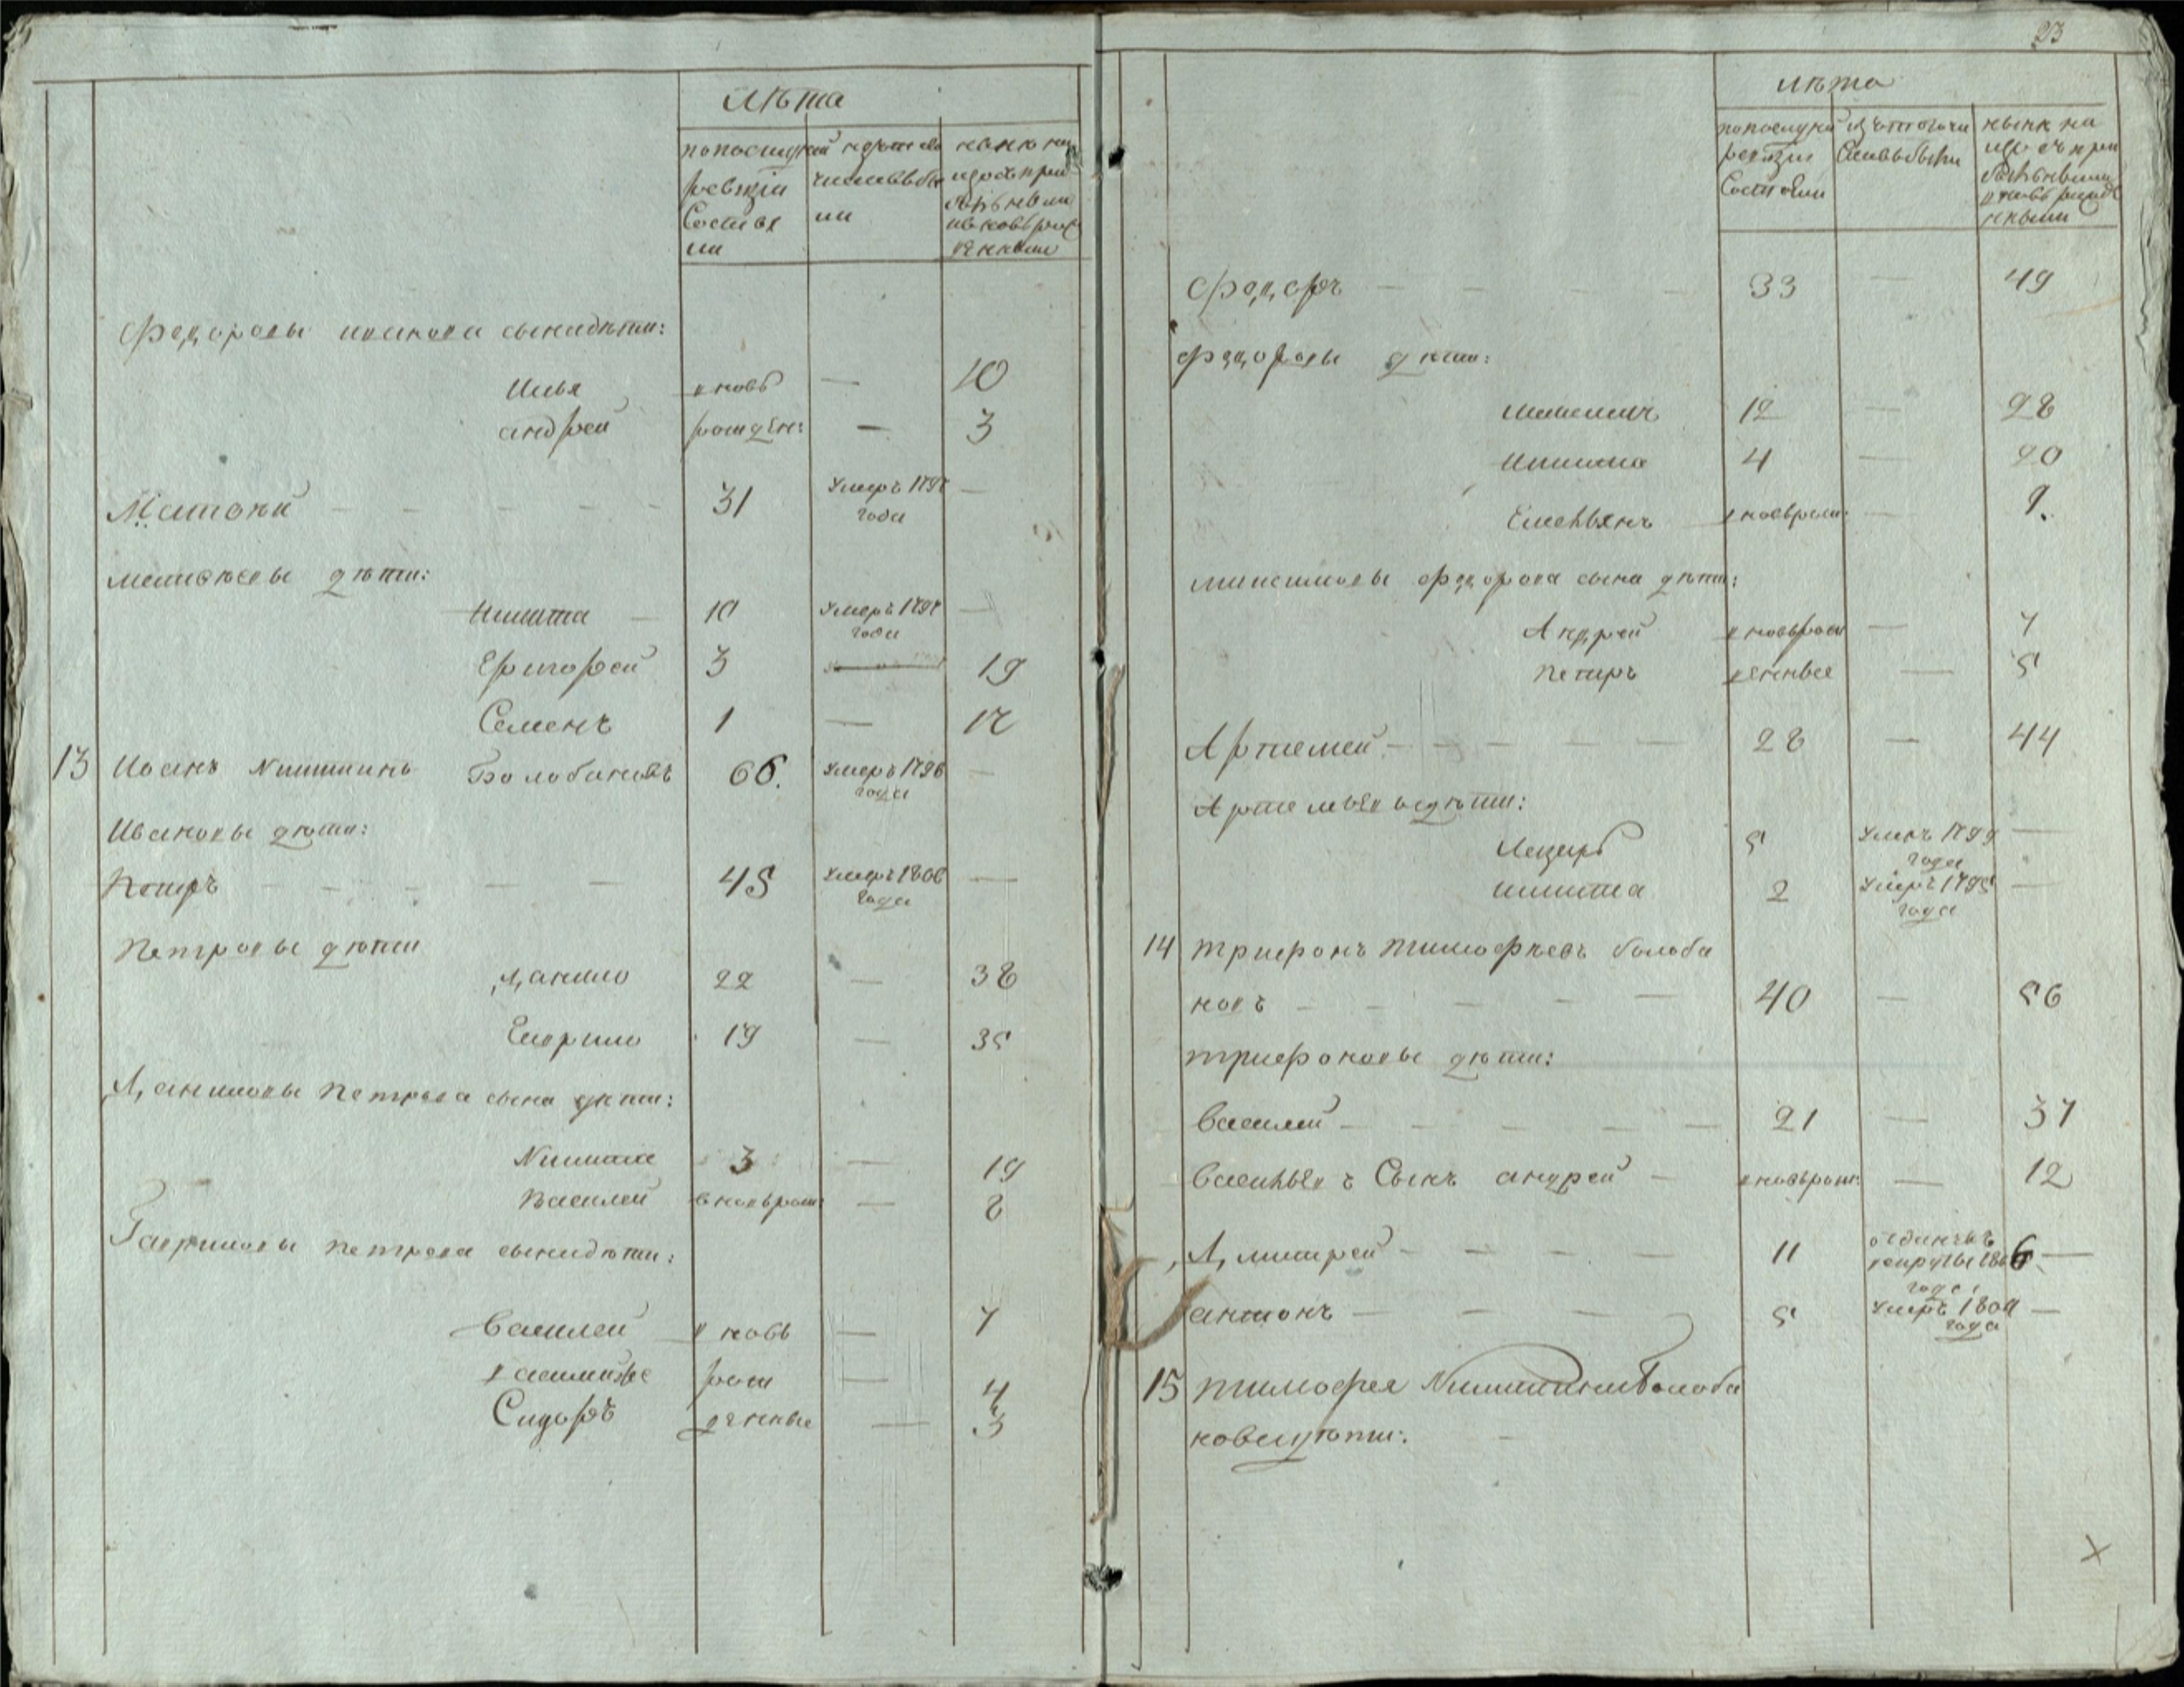 лѣта
по последней
ревизіи
состоял
ли
из того
числа выбы
ли
ныне на
лицо съ при
былыми
и вновь рож
денными
Федоровы иванова сына дѣти:
Илья вновь — 10
андрей рожден: — 3
Матвѣй — — — — — 31 умеръ 1797 —
года
матвѣевы дѣти:
Никита — 10 умеръ 1797 —
года
Григорей 3 — 19
Семенъ 1 — 17
13 Иванъ Никитинъ Болобановъ 66. умеръ 1796 —
года
Ивановы дѣти:
Петръ — — — — — 45 умеръ 1806 —
года
Петровы дѣти
Данило 22 — 38
Гаврило 19 — 35
Даниловы Петрова сына дѣти:
Никита 3 — 19
Василей вновь рож: — 8
Гавриловы петрова сына дѣти:
Василей вновь — 7
рож — 4
Сидоръ денные — 3
23
лѣта
по последней
ревизіи
состояли
из того чи
сла выбыли
ныне на
лицо съ при
былыми
и вновь рожде
нными
Федоръ — — — — 33 — 49
Федоровы дѣти:
Максимъ 12 — 28
Никита 4 — 20
Емельянъ вновь рож: — 9.
максимовы федорова сына дѣти:
Андрей вновь рож — 7
Петръ денные — 5
Артемей — — — — — 28 — 44
Артемьевы дѣти:
Лазарь 5 умеръ 1799 —
года
никита 2 умеръ 1795 —
года
14 трифонъ тимофѣевъ болоба
новъ — — — — — 40 — 56
трифоновы дѣти:
Василей — — — — — 21 — 37
Васильевъ Сынъ андрей — вновь рож: — 12
Дмитрей — — — — 11 отданъ въ
рекруты 1806 —
года
антонъ — — — 5 умеръ 1800 —
года
15 тимофея Никитина Болоба
нова дѣти: